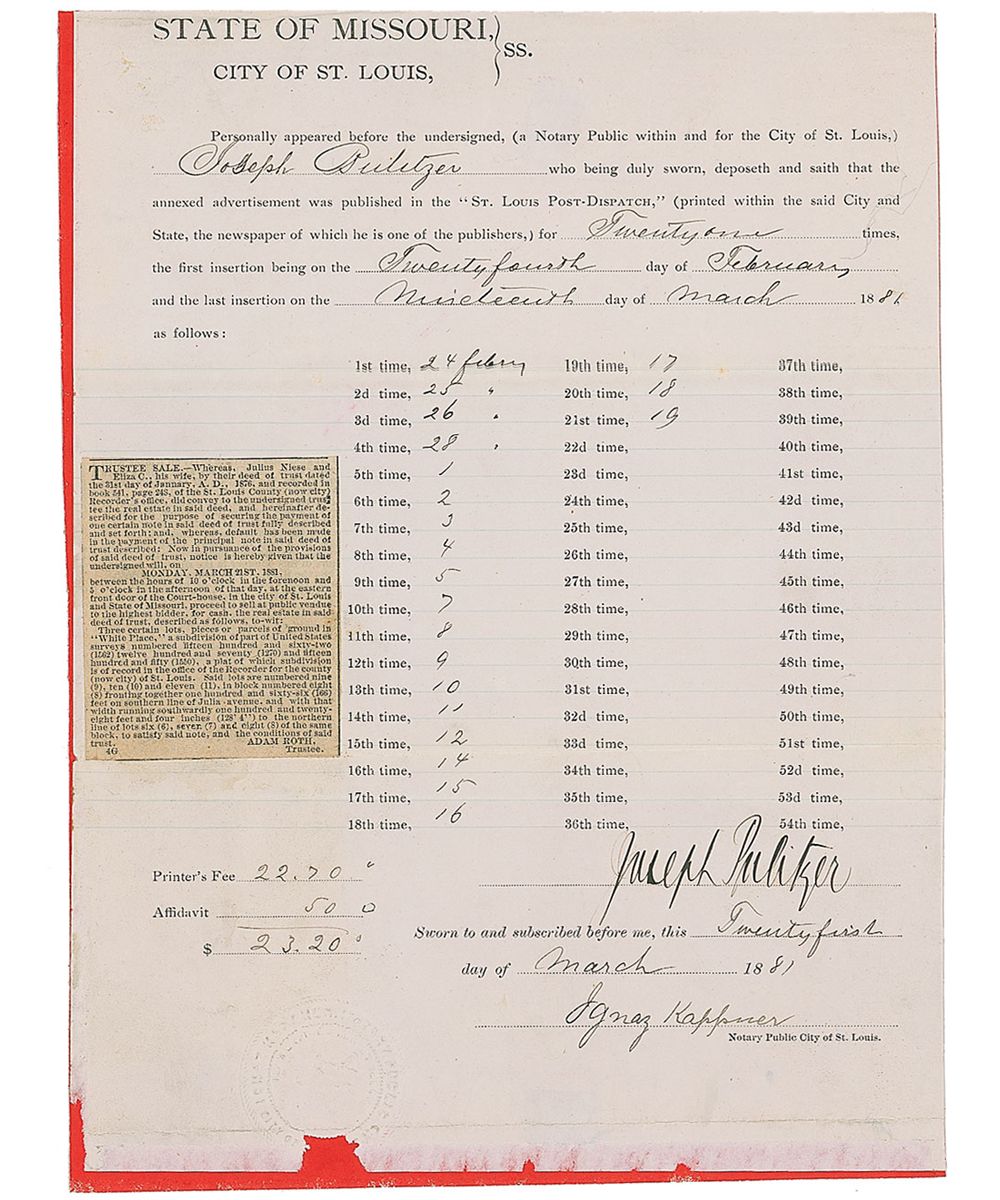 STATE OF MISSOURI,
CITY OF ST. LOUIS, } SS.
Personally appeared before the undersigned, (a Notary Public within and for the City of St. Louis,)
Joseph Pulitzer who being duly sworn, deposeth and saith that the
annexed advertisement was published in the "ST. LOUIS POST-DISPATCH," (printed within the said City and
State, the newspaper of which he is one of the publishers,) for Twentyone times,
the first insertion being on the Twentyfourth day of February
and the last insertion on the Nineteenth day of March 1881
as follows:
1st time, 24 febry 19th time, 17 37th time,
2d time, 25 " 20th time, 18 38th time,
3d time, 26 " 21st time, 19 39th time,
4th time, 28 " 22d time, 40th time,
5th time, 1 23d time, 41st time,
6th time, 2 24th time, 42d time,
7th time, 3 25th time, 43d time,
8th time, 4 26th time, 44th time,
9th time, 5 27th time, 45th time,
10th time, 7 28th time, 46th time,
11th time, 8 29th time, 47th time,
12th time, 9 30th time, 48th time,
13th time, 10 31st time, 49th time,
14th time, 11 32d time, 50th time,
15th time, 12 33d time, 51st time,
16th time, 14 34th time, 52d time,
17th time, 15 35th time, 53d time,
18th time, 16 36th time, 54th time,
TRUSTEE SALE.—Whereas, Julius Niese and
Eliza C., his wife, by their deed of trust dated
the 31st day of January, A. D., 1876, and recorded in
book 541, page 248, of the St. Louis County (now city)
Recorder's office, did convey to the undersigned trus-
tee the real estate in said deed, and hereinafter de-
scribed for the purpose of securing the payment of
one certain note in said deed of trust fully described
and set forth; and, whereas, default has been made
in the payment of the principal note in said deed of
trust described: Now in pursuance of the provisions
of said deed of trust, notice is hereby given that the
undersigned will, on
MONDAY, MARCH 21ST, 1881,
between the hours of 10 o'clock in the forenoon and
5 o'clock in the afternoon of that day, at the eastern
front door of the Court-house, in the city of St. Louis
and State of Missouri, proceed to sell at public vendue
to the highest bidder, for cash, the real estate in said
deed of trust, described as follows, to-wit:
Three certain lots, pieces or parcels of ground in
"White Place," a subdivision of part of United States
surveys numbered fifteen hundred and sixty-two
(1562) twelve hundred and seventy (1270) and fifteen
hundred and fifty (1550), a plat of which subdivision
is of record in the office of the Recorder for the county
(now city) of St. Louis. Said lots are numbered nine
(9), ten (10) and eleven (11), in block numbered eight
(8) fronting together one hundred and sixty-six (166)
feet on southern line of Julia avenue, and with that
width running southwardly one hundred and twenty-
eight feet and four inches (128' 4") to the northern
line of lots six (6), seven (7) and eight (8) of the same
block, to satisfy said note, and the conditions of said
trust. ADAM ROTH,
4G Trustee.
Joseph Pulitzer
Printer's Fee 22.70
Affidavit 50
$ 23.20
Sworn to and subscribed before me, this Twentyfirst
day of March 1881
Ignaz Kappner
Notary Public City of St. Louis.